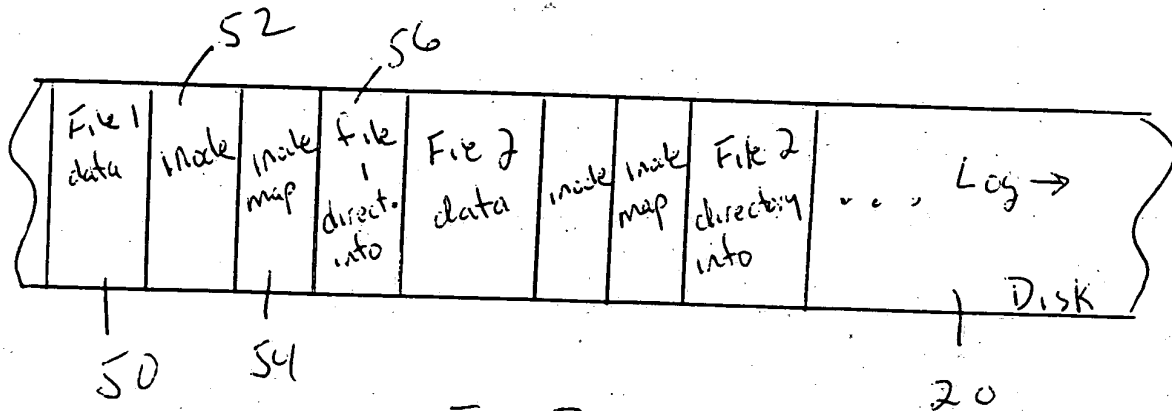 52
56
File 1
data
inode
inode
map
file
1
direct.
info
File 2
data
inode
inode
map
File 2
directory
info
... Log →
Disk
50
54
20